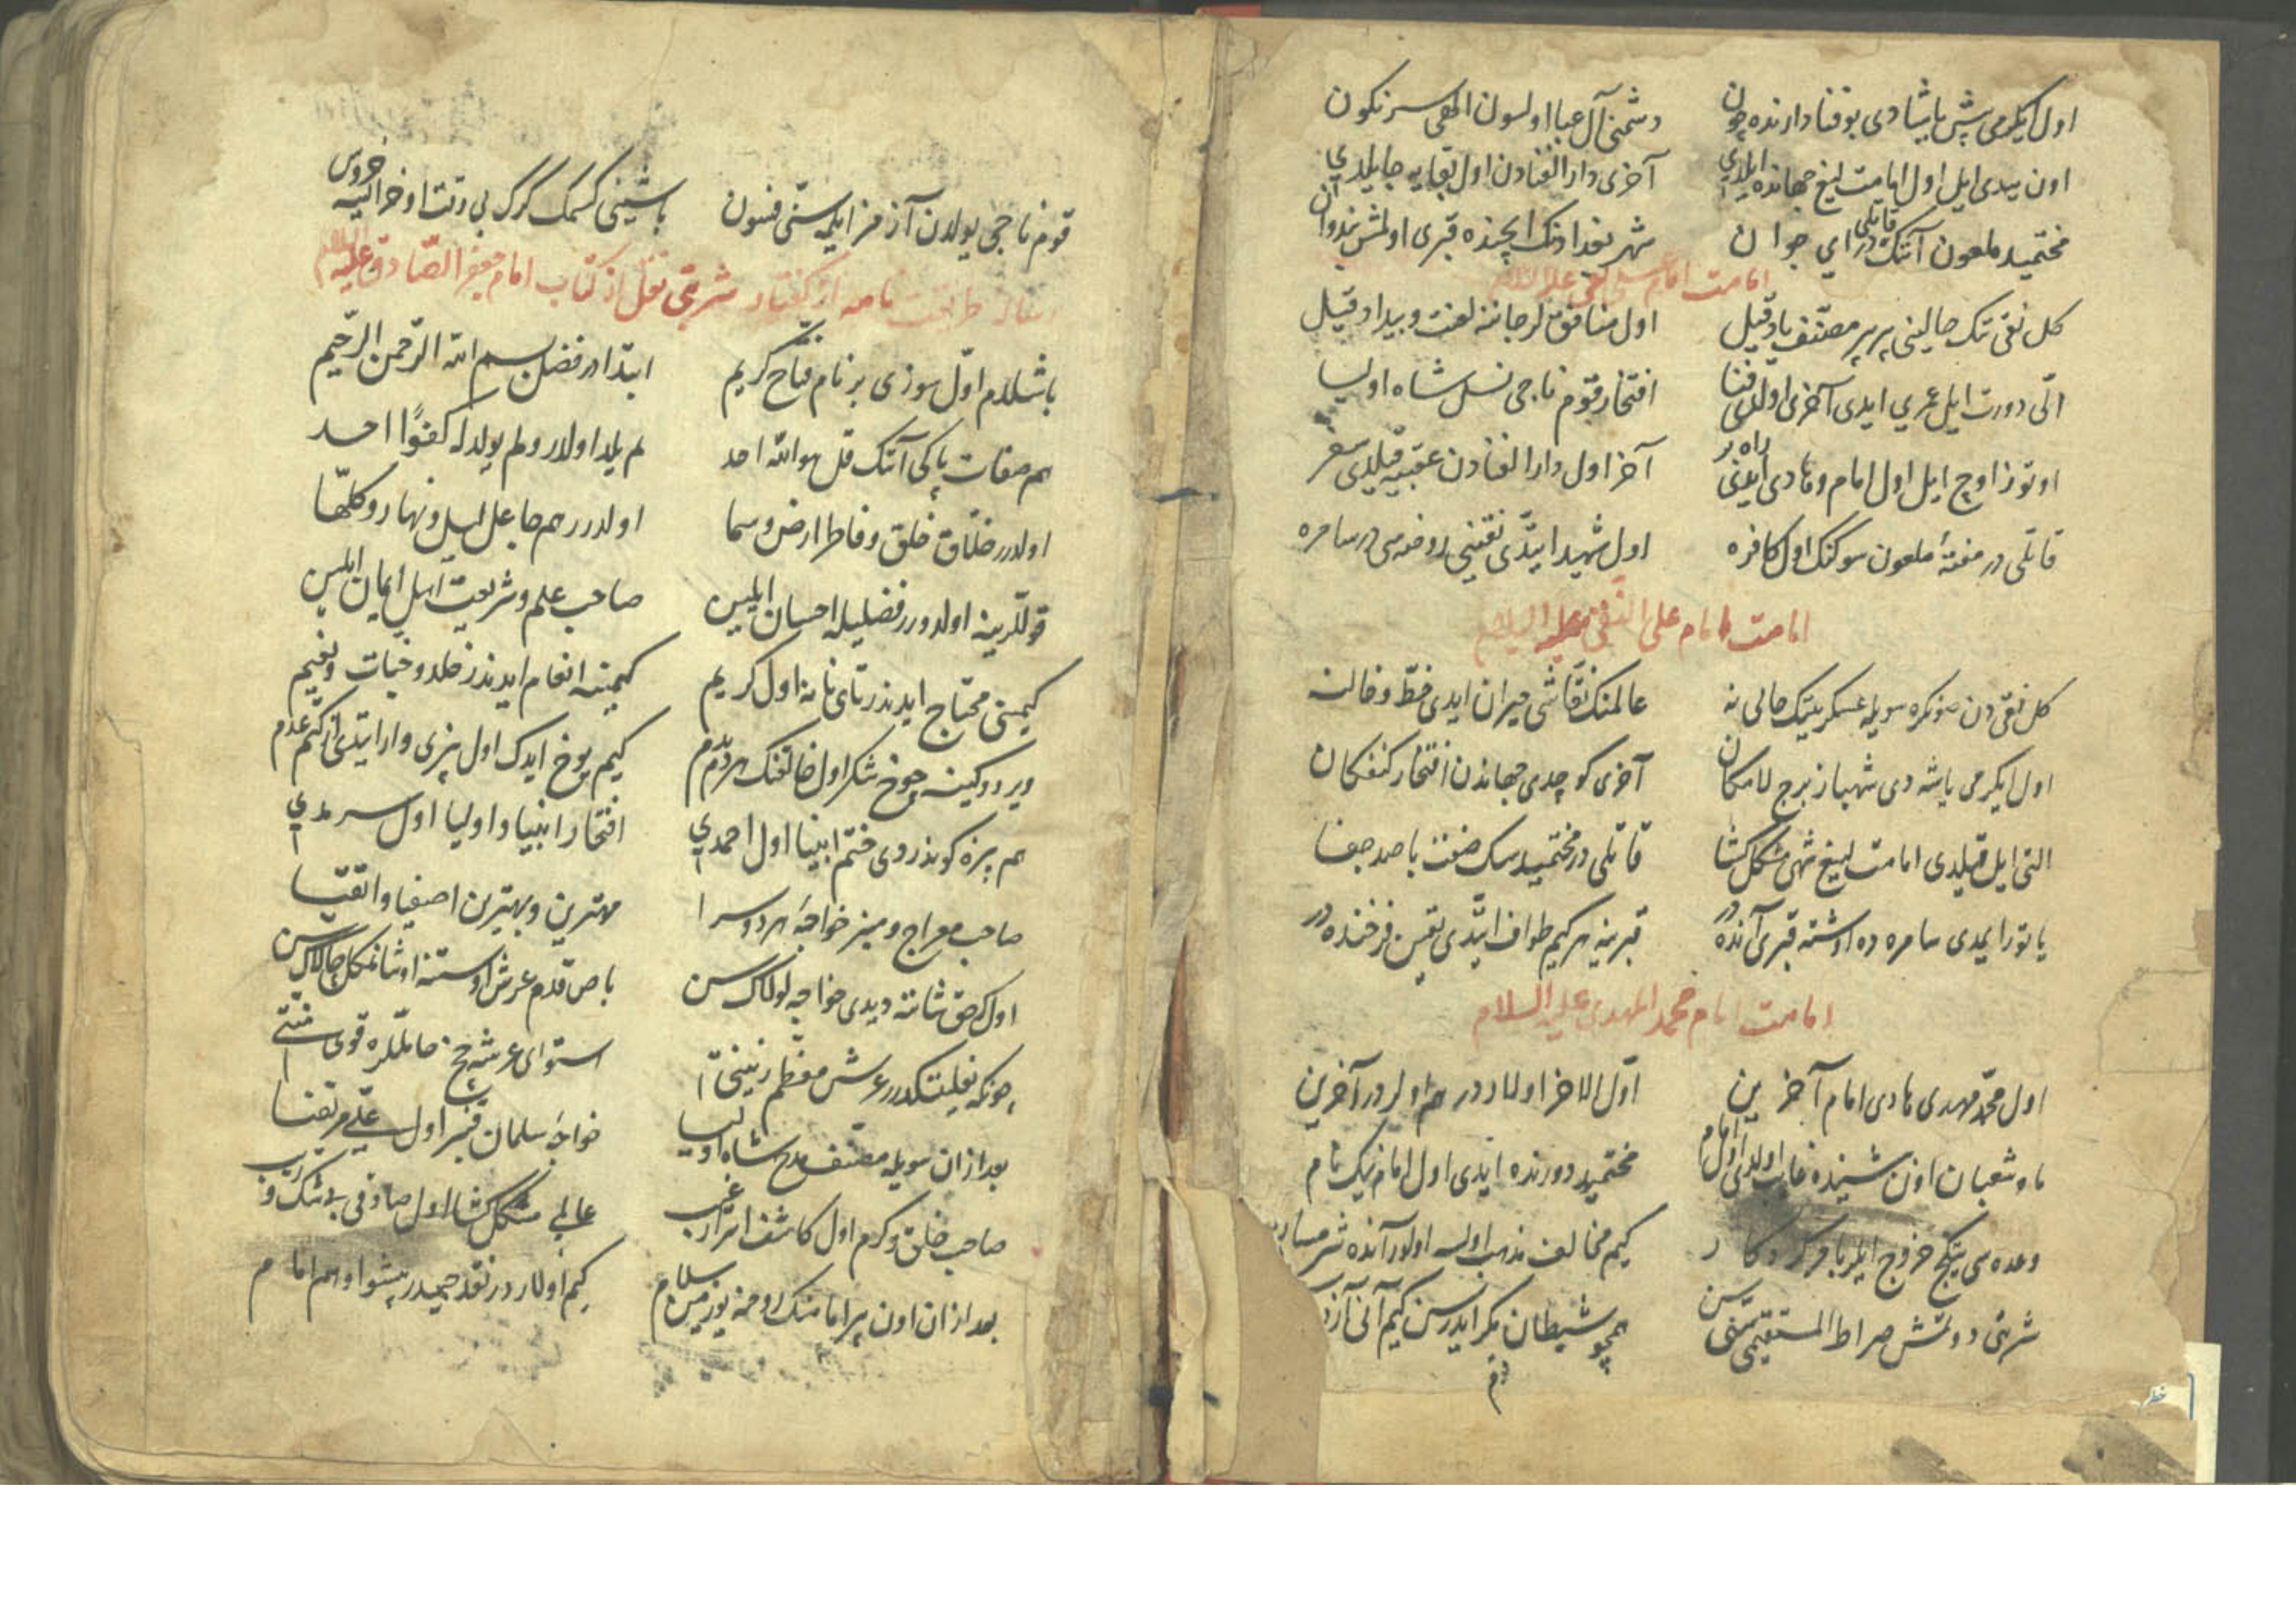 اول ایکرمی بش یاشادی بو فنا دارنده چون دشمنی آل عبا اولسون الهی سرنکون
اون یدی ایل اول امامت لیغ جهانده ایلدی آخری دار الفنادن اول بقایه جایلدی
مختمید ملعون آننک قاتلی در ای جوان شهر بغدادنک ایچنده قبری اولمش بو زمان
امامت امام علی نقی علیه السلام
کل نقی تنک حالینی بر بر مصنّف یاد قیل اول منافق لر جاننه لعنت و بیداد قیل
الّی دورت ایل عمری ایدی آخری اولدی فنا افتخار قوم ناجی نسل شاه اولیا
اوتوز اوچ ایل اول امام و هادی ایدی راه بر آخر اول دار الفنادن عقبیه قیلدی سفر
قاتلی در ملعون سوکنک اول کافره اول شهید ایتدی نقینی روضه سی در سامره
امامت امام علی النقی علیه السلام
کل نقی دن صونکره سویله عسکرینک حالی نه عالمنک نقاشی حیران ایدی خطّ و خالنه
اول ایکرمی یاشه دی شهباز برج لامکان آخری کوچدی جهاندن افتخار کنفکان
التی ایل قیلدی امامت لیغ شهی مشکل کشا قاتلی در مختمید سک صفت با صد جفا
یاتور ایدی سامره ده اوشته قبری آنده در قبرینه هر کیم طواف ایتدی یقین فرخنده در
امامت امام محمد المهدی علیه السلام
اول محمّد مهدی هادی امام آخرین اوّل الاخر اولار در هم اولر در آخرین
ماه شعبان اون شینده غایب اولدی اول امام مختمید دورنده ایدی اول امام نیک نام
وعده سی یتکچ خروج ایلر با کردکار کیم مخالف مذهب اولسه اولور آنده شرمسار
شربتی دوتمش صراط المستقیمی سن همچو شیطان مکر ایدرسن کیم آنی آزد
قوم ناجی یولدن آزمز ایلمه سنی فسون باشینی کسمک کرک بی وقت اوخراکیه خروس
رساله طریقت نامه از کفتار شربتی نقل از کتاب امام جعفر الصّادق علیه السلام
باشلارم اوّل سوزی بر نام فتّاح کریم ابتدا در فضل بسم الله الرّحمن الرّحیم
هم صفات پاکی آننک قل هو الله احد لم یلد اولار و لم یولد له کفوًا احد
اولدرر خلّاق خلق و فاطر ارض و سما اولدرر هم جاعل لیل و نهار و کلّها
قوللّرینه اولدورر فضلیله احسان ایلین صاحب علم و شریعت اهل ایمان ایلین
کیمینی محتاج ایدندر تای نانه اول کریم کیمینه انعام ایدندر خلد و جنات و نعیم
ویردوکینه چوخ شکر اول خالقنک هر دم بدم کیم یوخ ایدک اول بزی وار ایتدی از کتم عدم
هم بزه کوندردی ختم انبیا اول احمدی افتخار انبیا و اولیا اول سرمدی
صاحب معراج و منبر خواجهٔ هر دو سرا مهترین و بهترین اصفیا و اتقیا
اول که حق شاننه دیدی خواجه لولاک سن باص قدم عرش اوستنه اوشانمکل چالاک سن
چونکه نعلینکدرر عرش معظم زینتی استوای عرشه چ حاملره قوی منتی
بعد از ان سویله مصنّف مدح شاه اولیا خواجهٔ سلمان قنبر اول علیّ مرتضا
صاحب خلق و کرم اول کاشف اسرار غیب عالی مشکل کشا اول صادقی بی شک و ریب
بعد از ان اون بر امامنک روحنه یوز مین سلام کیم اولار در نقد حیدر پیشوا و هم امام